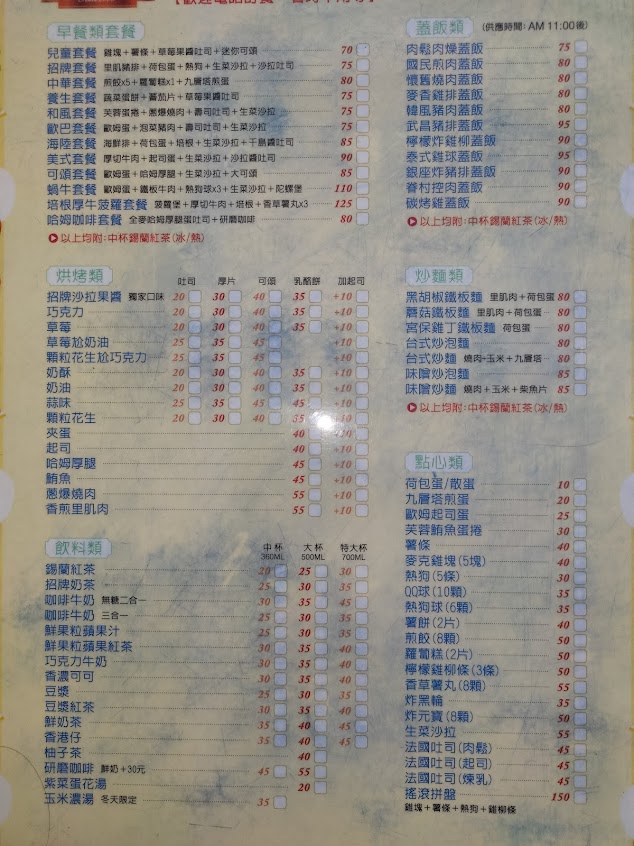 早餐類套餐
兒童套餐 雞塊+薯條+草莓果醬吐司+迷你可頌 70
招牌套餐 里肌豬排+荷包蛋+熱狗+生菜沙拉+沙拉吐司 75
中華套餐 煎餃x5+蘿蔔糕x1+九層塔煎蛋 80
養生套餐 蔬菜蛋餅+蕃茄片+草莓果醬吐司 75
和風套餐 芙蓉蛋捲+蔥爆燒肉+壽司吐司+生菜沙拉 75
歐巴套餐 歐姆蛋+泡菜豬肉+壽司吐司+生菜沙拉 75
海陸套餐 海鮮排+荷包蛋+培根+生菜沙拉+千島醬吐司 85
美式套餐 厚切牛肉+起司蛋+生菜沙拉+沙拉醬吐司 90
可頌套餐 歐姆蛋+哈姆厚腿+生菜沙拉+大可頌 85
蝸牛套餐 歐姆蛋+鐵板牛肉+熱狗球x3+生菜沙拉+陀螺堡 110
培根厚牛菠蘿套餐 菠蘿堡+厚切牛肉+培根+香草薯丸x3 125
哈姆咖啡套餐 全麥哈姆厚腿蛋吐司+研磨咖啡 80
以上均附:中杯錫蘭紅茶(冰/熱)
烘烤類 吐司 厚片 可頌 乳酪餅 加起司
招牌沙拉果醬 獨家口味 20 30 40 35 +10
巧克力 20 30 40 35 +10
草莓 20 30 40 35 +10
草莓尬奶油 25 35 45 +10
顆粒花生尬巧克力 25 35 45 +10
奶酥 20 30 40 35 +10
奶油 20 30 40 35 +10
蒜味 25 35 45 +10
顆粒花生 20 30 40 +10
夾蛋 40 +10
起司 40 +10
哈姆厚腿 45 +10
鮪魚 45 +10
蔥爆燒肉 55 +10
香煎里肌肉 55 +10
飲料類 中杯 360ML 大杯 500ML 特大杯 700ML
錫蘭紅茶 20 25 30
招牌奶茶 25 30 35
咖啡牛奶 無糖二合一 30 35 45
咖啡牛奶 三合一 25 30 35
鮮果粒蘋果汁 25 30 35
鮮果粒蘋果紅茶 30 35 40
巧克力牛奶 30 35 45
香濃可可 30 35 40
豆漿 25 30 35
豆漿紅茶 30 35 40
鮮奶茶 35 40 45
香港仔 35 40 45
柚子茶 40
研磨咖啡 鮮奶+30元 45 55
紫菜蛋花湯 20
玉米濃湯 冬天限定 35
蓋飯類 (供應時間: AM 11:00後)
肉鬆肉燥蓋飯 75
國民煎肉蓋飯 80
懷舊燒肉蓋飯 80
麥香雞排蓋飯 80
韓風豬肉蓋飯 80
武昌豬排蓋飯 95
檸檬炸雞柳蓋飯 90
泰式雞球蓋飯 95
銀座炸豬排蓋飯 90
眷村控肉蓋飯 90
碳烤雞蓋飯 90
以上均附:中杯錫蘭紅茶(冰/熱)
炒麵類
黑胡椒鐵板麵 里肌肉+荷包蛋 80
蘑菇鐵板麵 里肌肉+荷包蛋 80
宮保雞丁鐵板麵 荷包蛋 90
台式炒泡麵 80
台式炒麵 燒肉+玉米+九層塔 80
味噌炒泡麵 85
味噌炒麵 燒肉+玉米+柴魚片 85
以上均附:中杯錫蘭紅茶(冰/熱)
點心類
荷包蛋/散蛋 10
九層塔煎蛋 20
歐姆起司蛋 25
芙蓉鮪魚蛋捲 30
薯條 40
麥克雞塊(5塊) 40
熱狗(5條) 30
QQ球(10顆) 35
熱狗球(6顆) 35
薯餅(2片) 40
煎餃(8顆) 50
蘿蔔糕(2片) 50
檸檬雞柳條(3條) 50
香草薯丸(8顆) 55
炸黑輪 35
炸元寶(8顆) 50
生菜沙拉 55
法國吐司(肉鬆) 45
法國吐司(起司) 45
法國吐司(煉乳) 45
搖滾拼盤 150
雞塊+薯條+熱狗+雞柳條